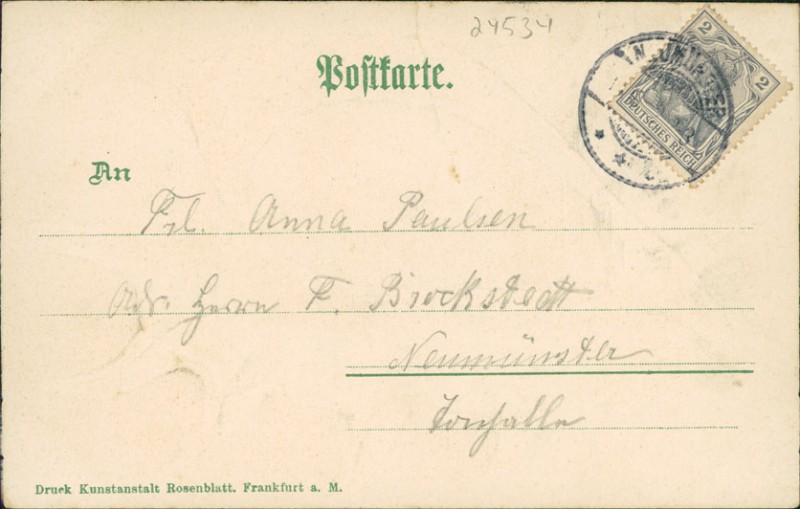 24534
Postkarte.
2
2
DEUTSCHES REICH
An
Frl. Anna Paulsen
Adr. Herrn F. Brockstedt
Neumünster
Tonhalle
Druck Kunstanstalt Rosenblatt. Frankfurt a. M.